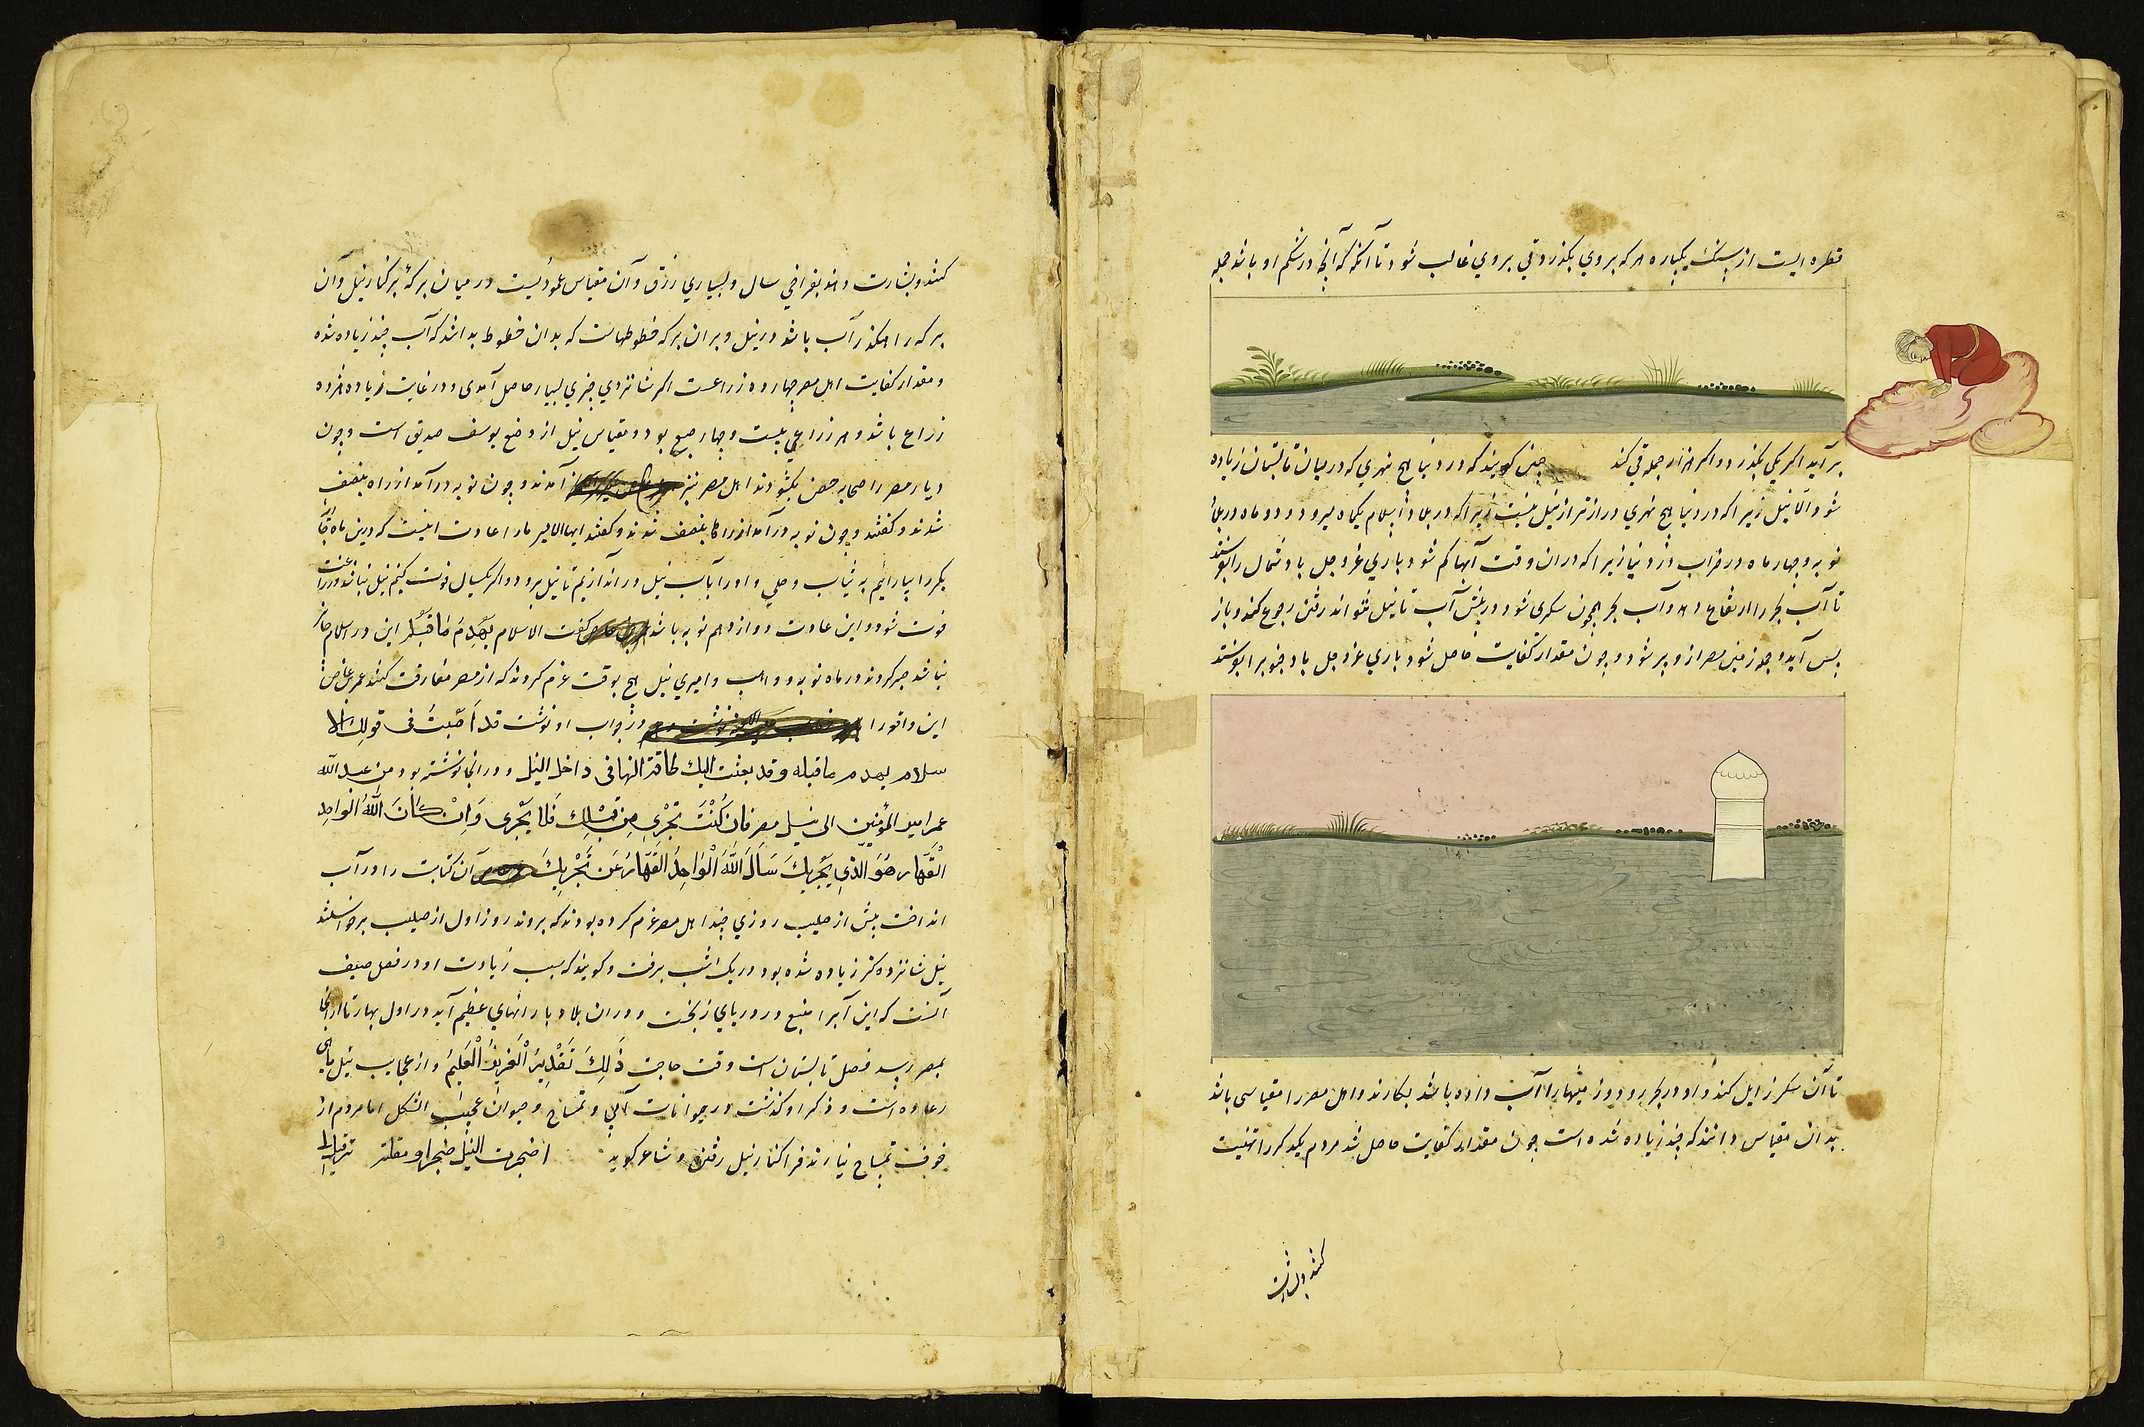 قنطره ایست از سنک یکباره هر که بروی بکذرد قی بروی غالب شود تا آنکه که آنچه در شکم او باشد جمله
بر آید اکر یکی بکذرد و اکر هزار جمله قی کند چنین کویند که در دنیا هیچ نهری که در میان تابستان زیاده
شود الا نیل زیرا که در دنیا هیچ نهری درازتر از نیل نیست زیرا که در بلاد اسلام یکماه میرود و دو ماه در بلاد
نوبه و چهار ماه در خراب و در دنیا زیرا که در ان وقت آبها کم شود باری عز و جل باد شمال را بفرستد
تا آب بحر را ارتفاع دهد و آب بحر همچون سکری شود در پیش آب تا نیل نتواند رفتن رجوع کند و باز
پس آید و چون زمین مصر ازو پر شود و چون مقدار کفایت حاصل شود باری عز و جل باد جنوب را بفرستد
تا آن سکر زایل کند و او در بحر رود و زمینها را آب داده باشد بکارند و اهل مصر را مقیاسی باشد
بدان مقیاس دانند که چند زیاده شده است چون مقدار کفایت حاصل شد مردم یکدیکر را تهنیت
کنند و بشارت
کنند و بشارت دهند بفراخی سال و بسیاری رزق و آن مقیاس عمودیست در میان برکهٔ بر کنار نیل و آن
برکه را رهکذر آب باشد در نیل و بر ان برکه خطوطهاست که بدان خطوط بدانند که آب چند زیاده شده
و مقدار کفایت اهل مصر چهارده زراعست اکر شانزدی چیزی بسیار حاصل آمدی و در غایت زیاده هژده
زراع باشد و هر زراعی بیست و چهار اصبع بود و مقیاس نیل از وضع یوسف صدیق است و چون
دیار مصر را صحابه بکشودند اهل مصر نیز آمدند و چون نوبه در آمد از راه بضعف
شدند و کفتند و چون نوبه در آمد شدند و کفتند ایها الامیر ما را عادت اینست که درین ماه
بکر را بیارائیم به ثیاب و حلی و او را بآب نیل در اندازیم تا نیل برود و اکر یکسال فوت کنیم نیل نیاید و زراعت
فوت شود و این عادت دوازدهم نوبه باشد کفت الاسلام یهدم ما قبله این در اسلام جایز
نباشد صبر کردند در ماه نوبه و آب و ابیب نیل هیچ نرفت عزم کردند که از مصر مفارقت کنند عمرو عاص
این واقعه را در جواب او نوشت قد اصبت فی قولک الا
سلام یهدم ما قبله و قد بعثت الیک بطاقة القها فی داخل النیل و در انجا نوشته بود من عبد الله
عمر امیر المؤمنین الی نیل مصر فان کنت تجری من قبلک فلا تجری و ان کان الله الواحد
القهار هو الذی یجریک سال الله الواحد القهار عن تجریک آن کتابت را در آب
انداخت پیش از صلیب روزی چند اهل مصر عزم کرده بودند که بروند روز اول از صلیب برخاستند
نیل شانزده کز زیاده شده بود در یک شب برفت و کویند که سبب زیادت او در فصل صیف
آنست که این آبرا منبع در دریای زنجست و در ان بلاد بارانهای عظیم آید در اول بهار تا از انجا
بمصر رسد فصل تابستان است وقت حاجت ذلک تقدیر العزیز العلیم و از عجایب نیل ماهی
رعاده است و ذکر او کذشت در حیوانات آبی و تمساح و حیوان عجیب الشکل اما مردم از
خوف تمساح نیارند فرا کنار نیل رفتن و شاعر کوید اضجرت النیل